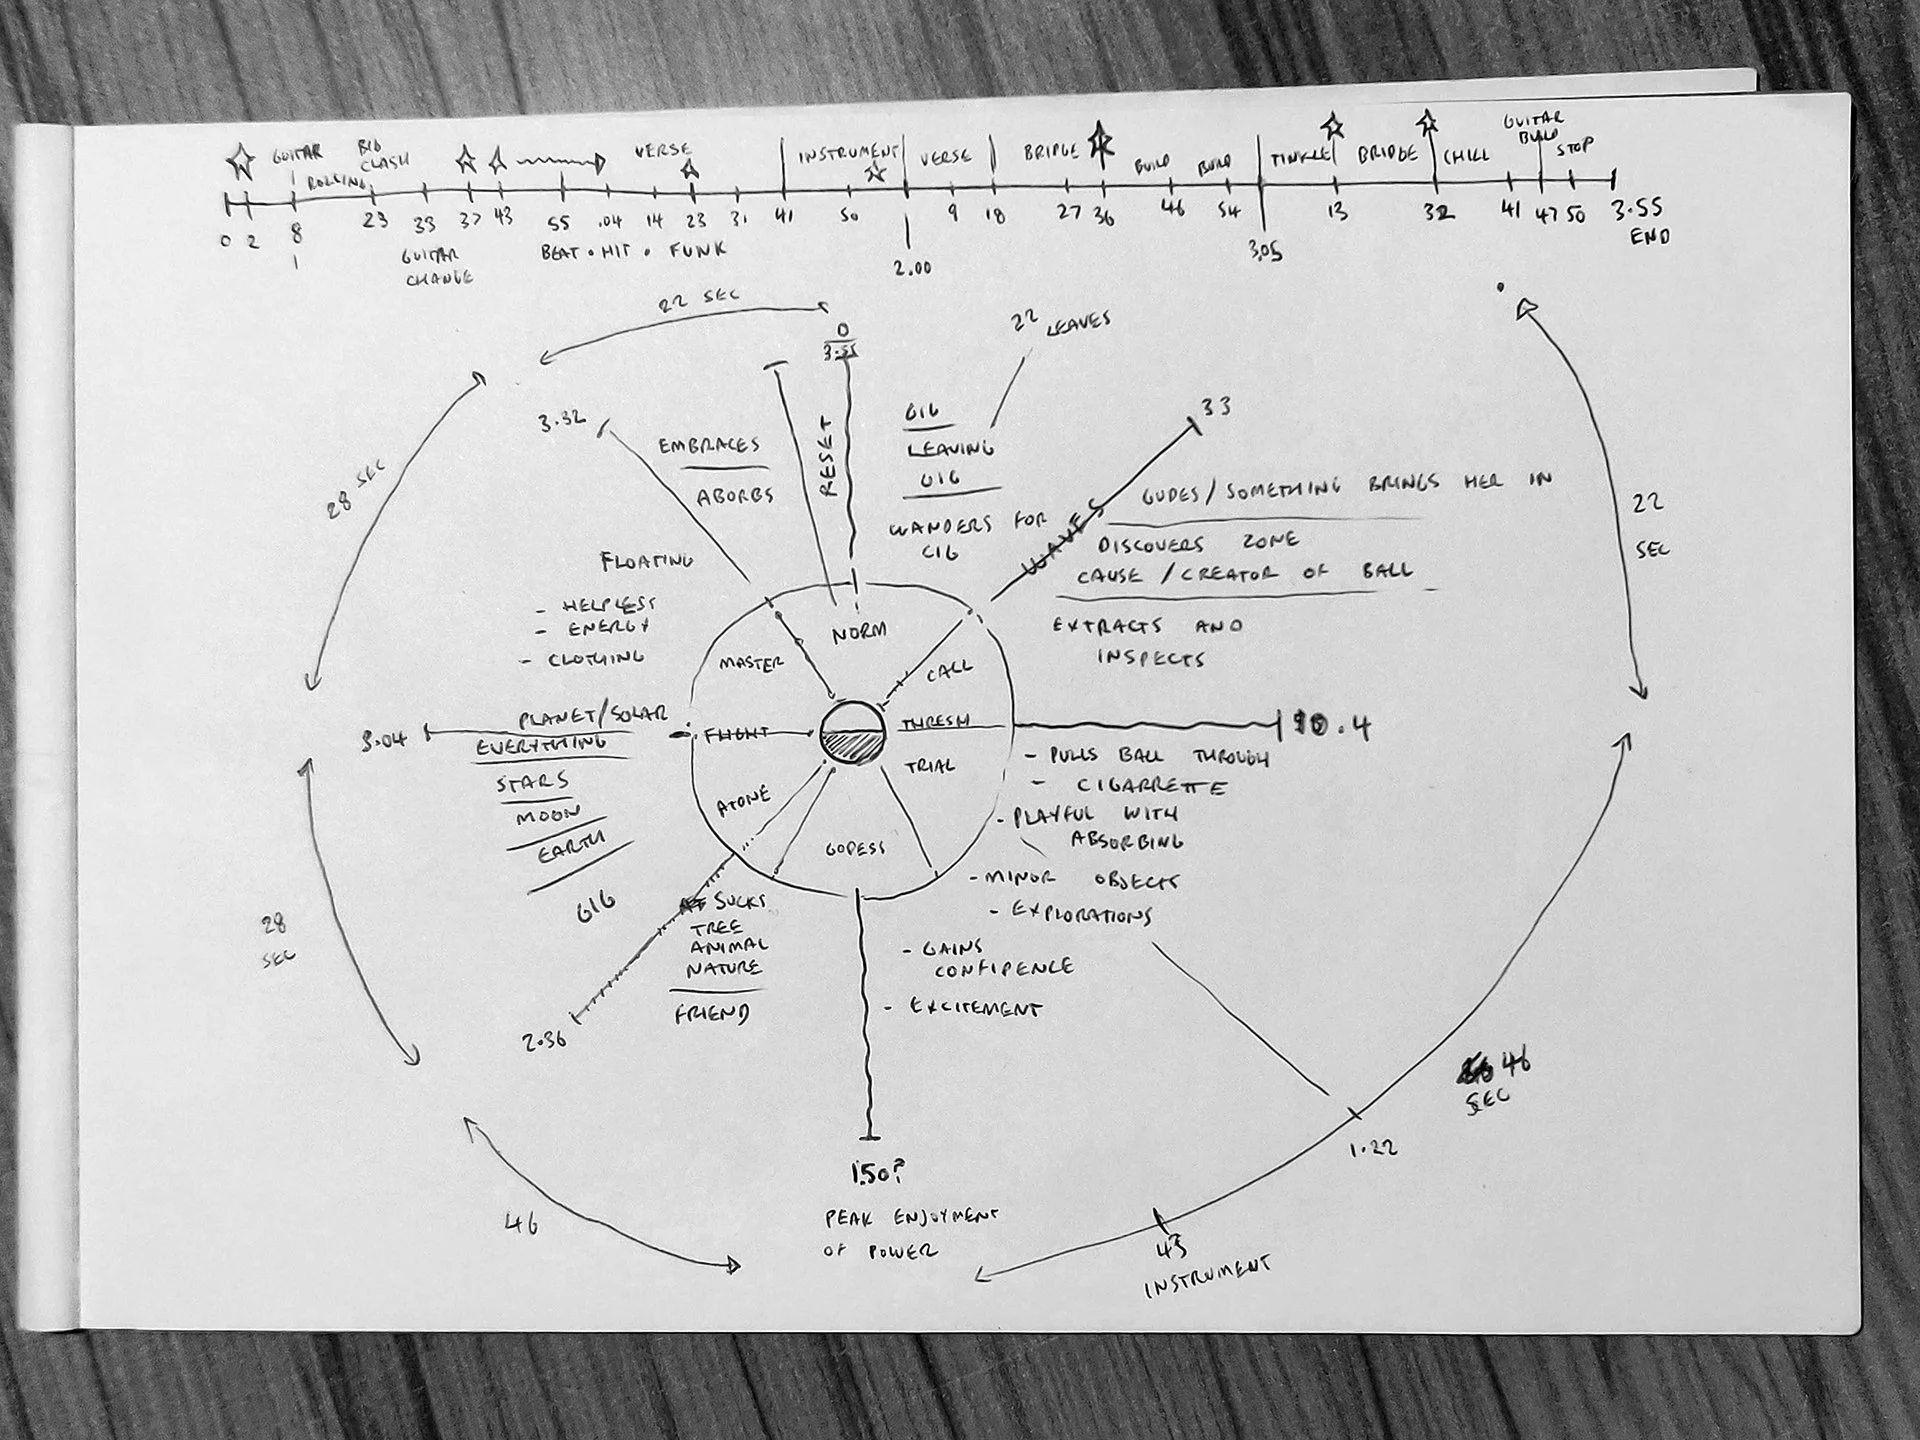 GUITAR
ROLSING
BIG
CLASH
VERSE
INSTRUMENT
VERSE
BRIDGE
BUILD
BUILD
TINKLE
BRIDGE
CHILL
GUITAR
BUILD
STOP
0 2 8 23 33 37 43 55 .04 14 23 31 41 50 9 18 27 36 46 54 13 32 41 47 50 3.55
END
1
GUITAR
CHANGE
BEAT • HIT • FUNK
2.00
3.05
22 SEC
0
3.55
22 LEAVES
3.32
33
EMBRACES
ABORBS
RESET
GIG
LEAVING
GIG
WANDERS FOR
CIG
WAVES
GUDES/SOMETHING BRINGS HER IN
DISCOVERS ZONE
CAUSE/CREATOR OF BALL
EXTRACTS AND
INSPECTS
28 SEC
22
SEC
FLOATING
- HELPLESS
- ENERGY
- CLOTHING
NORM
MASTER
CALL
THRESH
FLIGHT
TRIAL
ATONE
GODESS
3.04
PLANET/SOLAR
EVERYTHING
STARS
MOON
EARTH
GIG
.4
- PULLS BALL THROUGH
- CIGARRETTE
- PLAYFUL WITH
ABSORBING
- MINOR OBJECTS
- EXPLORATIONS
- GAINS
CONFIDENCE
- EXCITEMENT
SUCKS
TREE
ANIMAL
NATURE
FRIEND
2.36
28
SEC
46
SEC
1.22
1.50?
PEAK ENJOYMENT
OF POWER
43
INSTRUMENT
46